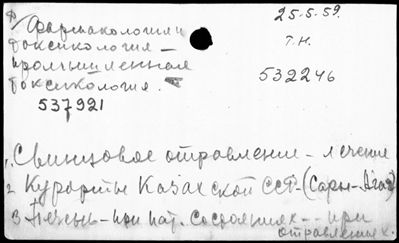 Фармакология и
токсикология —
промышленная
токсикология.
537921
25-5-59.
Т.Н.
532246
1. Свинцовое отравление – лечение
2 Курорты Казахской ССР – (Сары-Агач)
3 Печень – при пат. состояниях – – при
отравлениях.